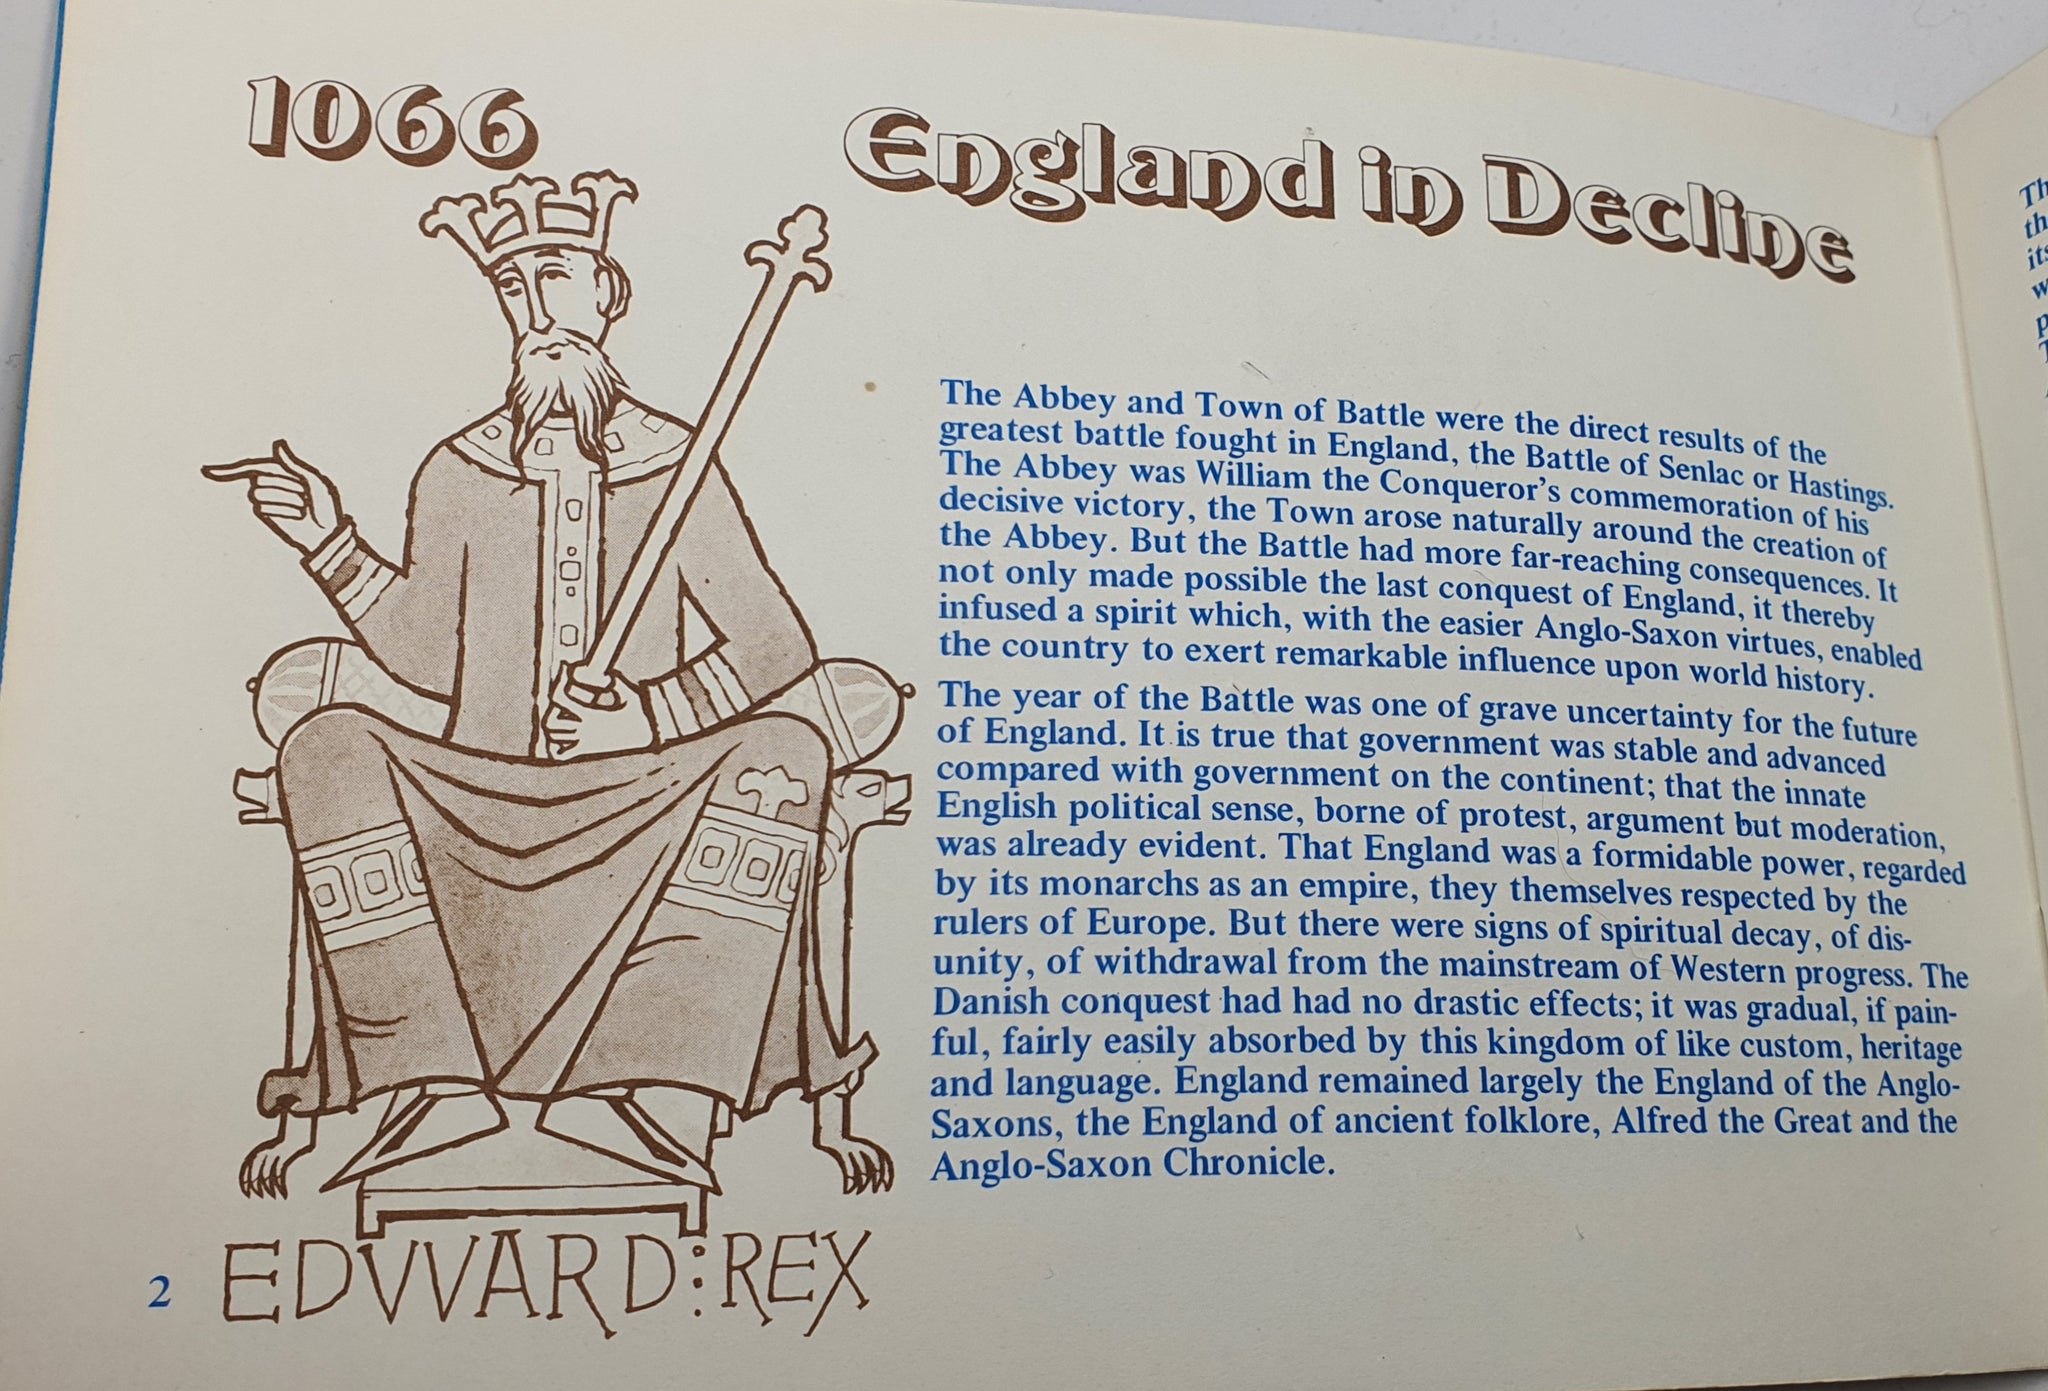 1066
England in Decline
The Abbey and Town of Battle were the direct results of the
greatest battle fought in England, the Battle of Senlac or Hastings.
The Abbey was William the Conqueror's commemoration of his
decisive victory, the Town arose naturally around the creation of
the Abbey. But the Battle had more far-reaching consequences. It
not only made possible the last conquest of England, it thereby
infused a spirit which, with the easier Anglo-Saxon virtues, enabled
the country to exert remarkable influence upon world history.
The year of the Battle was one of grave uncertainty for the future
of England. It is true that government was stable and advanced
compared with government on the continent; that the innate
English political sense, borne of protest, argument but moderation,
was already evident. That England was a formidable power, regarded
by its monarchs as an empire, they themselves respected by the
rulers of Europe. But there were signs of spiritual decay, of dis-
unity, of withdrawal from the mainstream of Western progress. The
Danish conquest had had no drastic effects; it was gradual, if pain-
ful, fairly easily absorbed by this kingdom of like custom, heritage
and language. England remained largely the England of the Anglo-
Saxons, the England of ancient folklore, Alfred the Great and the
Anglo-Saxon Chronicle.
EDVVARD:REX
2